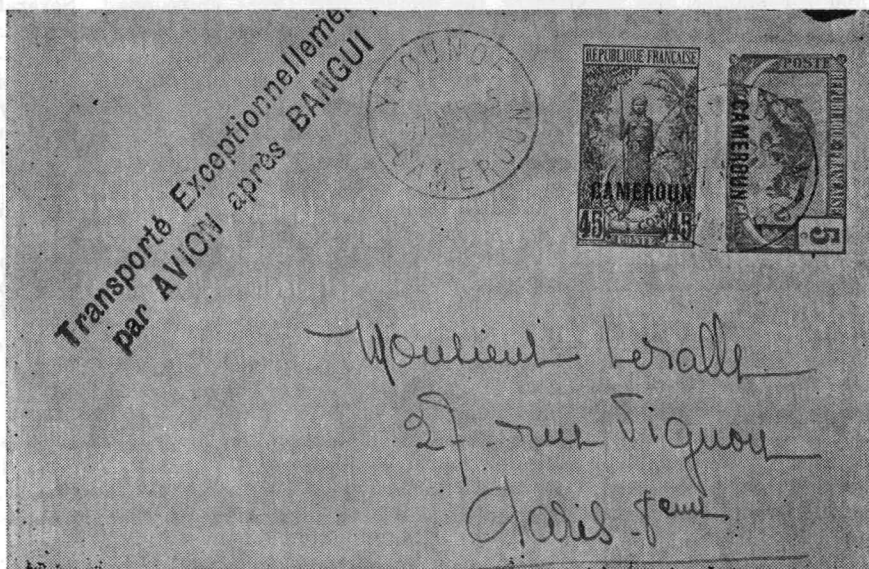 Transporté Exceptionnelleme
par AVION après BANGUI
YAOUNDE
CAMEROUN
RÉPUBLIQUE FRANÇAISE
CAMEROUN
45 45
POSTE
POSTE
RÉPUBLIQUE FRANÇAISE
CAMEROUN
5
Monsieur
27 - rue Vignon
Paris - 8eme